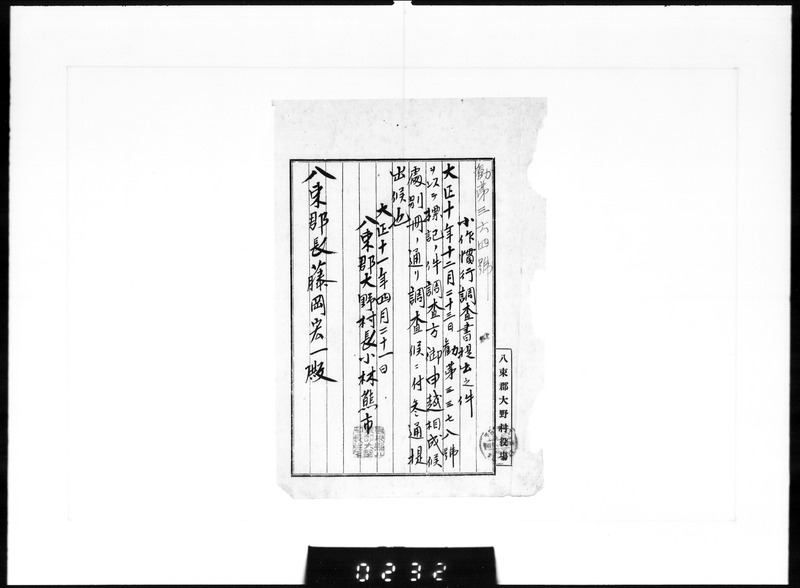 勧第三六四號
小作慣行調査書提出之件
大正十年十二月二十三日勧第三三七八號
ヲ以テ標記ノ件調査方御申越相成候
處別冊ノ通リ調査候ニ付
通提
出候也
大正十一年四月二十一日
八束郡大野村長小林熊市
八束郡長藤岡宏一殿
八束郡大野村役場
0232